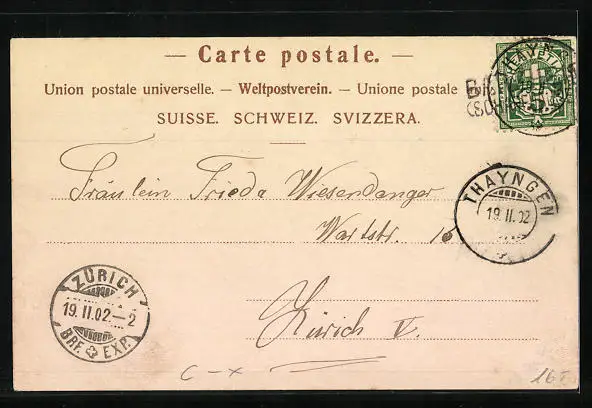 — Carte postale. —
Union postale universelle. — Weltpostverein. — Unione postale
SUISSE. SCHWEIZ. SVIZZERA.
THAYNGEN
19.II.02
Fräulein Frieda Wiesendanger
Wartstr. 16
Zürich V.
ZÜRICH
19.II.02.–2
BRF. EXP.
C – x